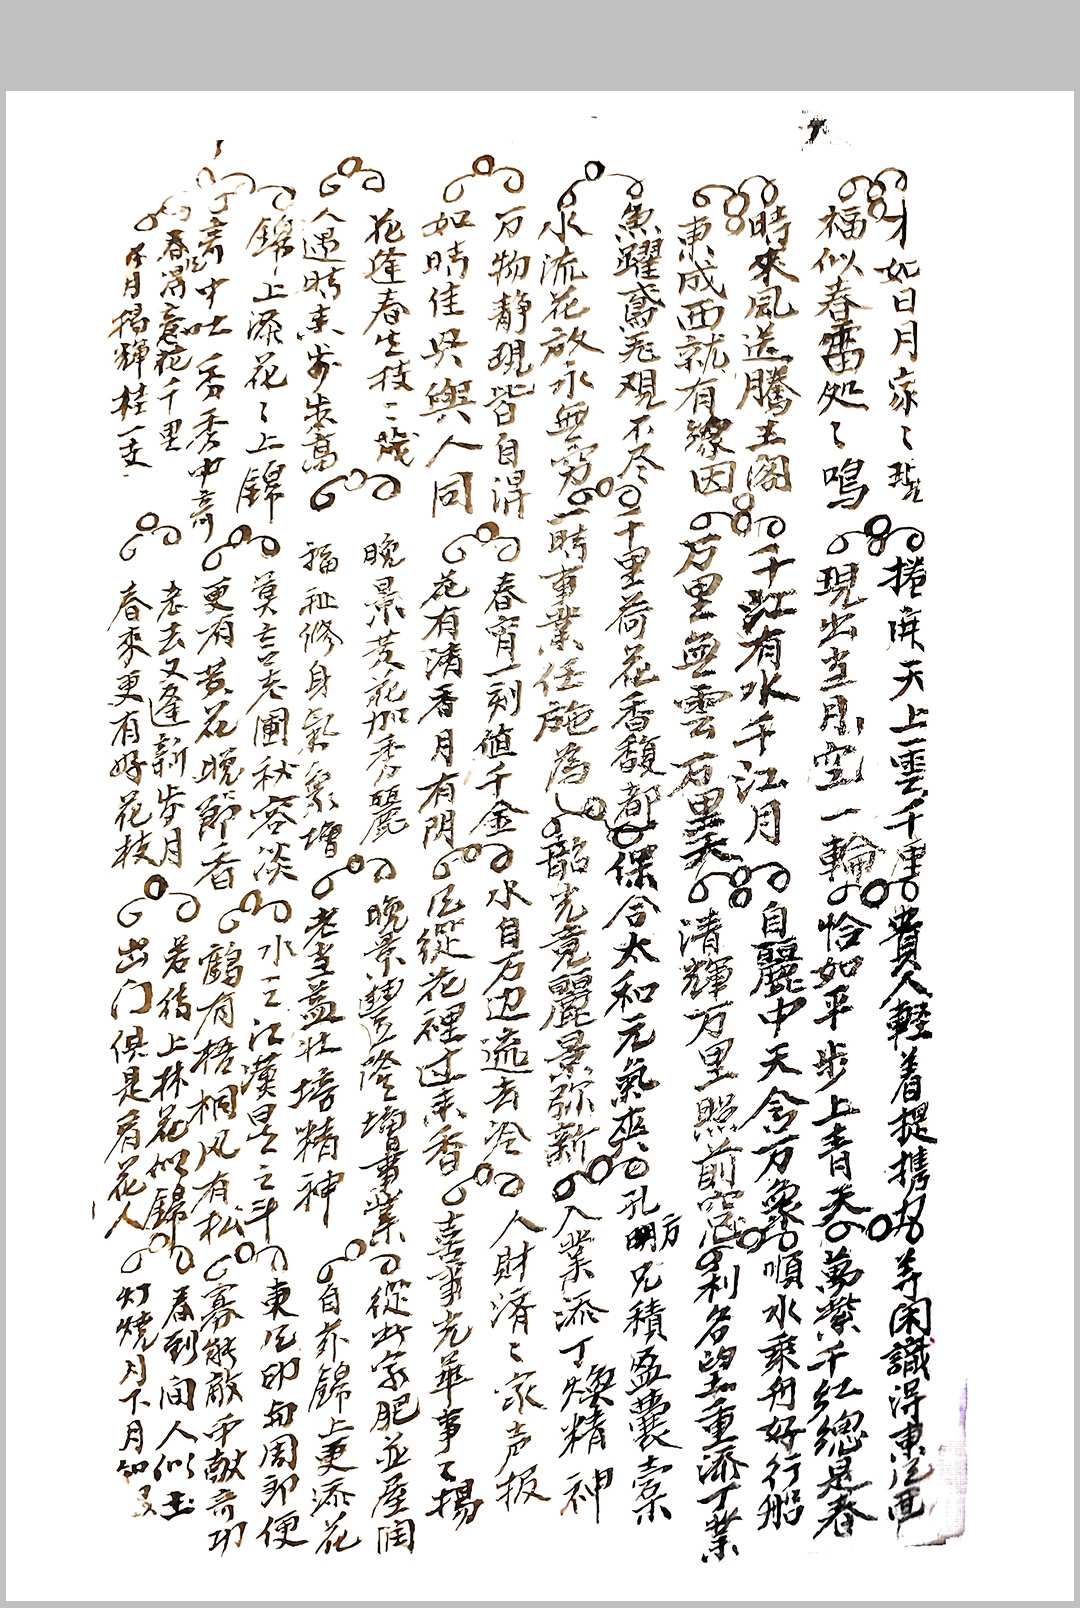 才如日月家〻 捲簾天上雲千里 費人輕着提携力 等閑識得東風面
福似春雷処〻鳴 現出当 空一輪 恰如平步上青天 萬紫千紅總是春
時來風送騰王阁 千江有水千江月 自麗中天含万象 順水乘舟好行船
東成西就有緣因 万里無雲万里天 清輝万里照前窓 利名 重添丁業
魚躍鳶飛覌不尽 千里荷花香馥都 保合太和元氣夾 孔明方兄積盈囊橐
水流花放永無穷 一時事業任施為 韶光竟麗景弥新 入業添丁煥精神
万物静現皆自淂 春宵一刻値千金 水自万边流去冷 人財済〻家声振
如時佳 與人同 花有清香月有阴 風從花裡过来香 喜事光華事〻揚
花逢春生枝〻 晚景芳菲加秀麗 晚景豐隆增事業 從此家肥並屋润
人遇時来步步高 福祉修身氣象增 老当益壮培精神 自 錦上更添花
錦上添花〻上錦 莫言老圃秋容淡 水 江漢 之斗 東风 周郎便
奇中吐秀秀中奇 更有黄花晚節香 鶴有梧桐风有松 寡能敵 献奇功
春 意花千里 老去又逢新岁月 若待上林花似錦 春到 间人似玉
月揚輝桂一 春來更有好花枝 出门俱是看花人 灯燒月下月如